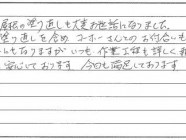 屋根の塗り直しも大変お世話になりました。
塗り直しを含め、ユーホーさんとのお付合いも
にもなりますが いつも 作業工程も詳しく
安心しております 今回も満足しております